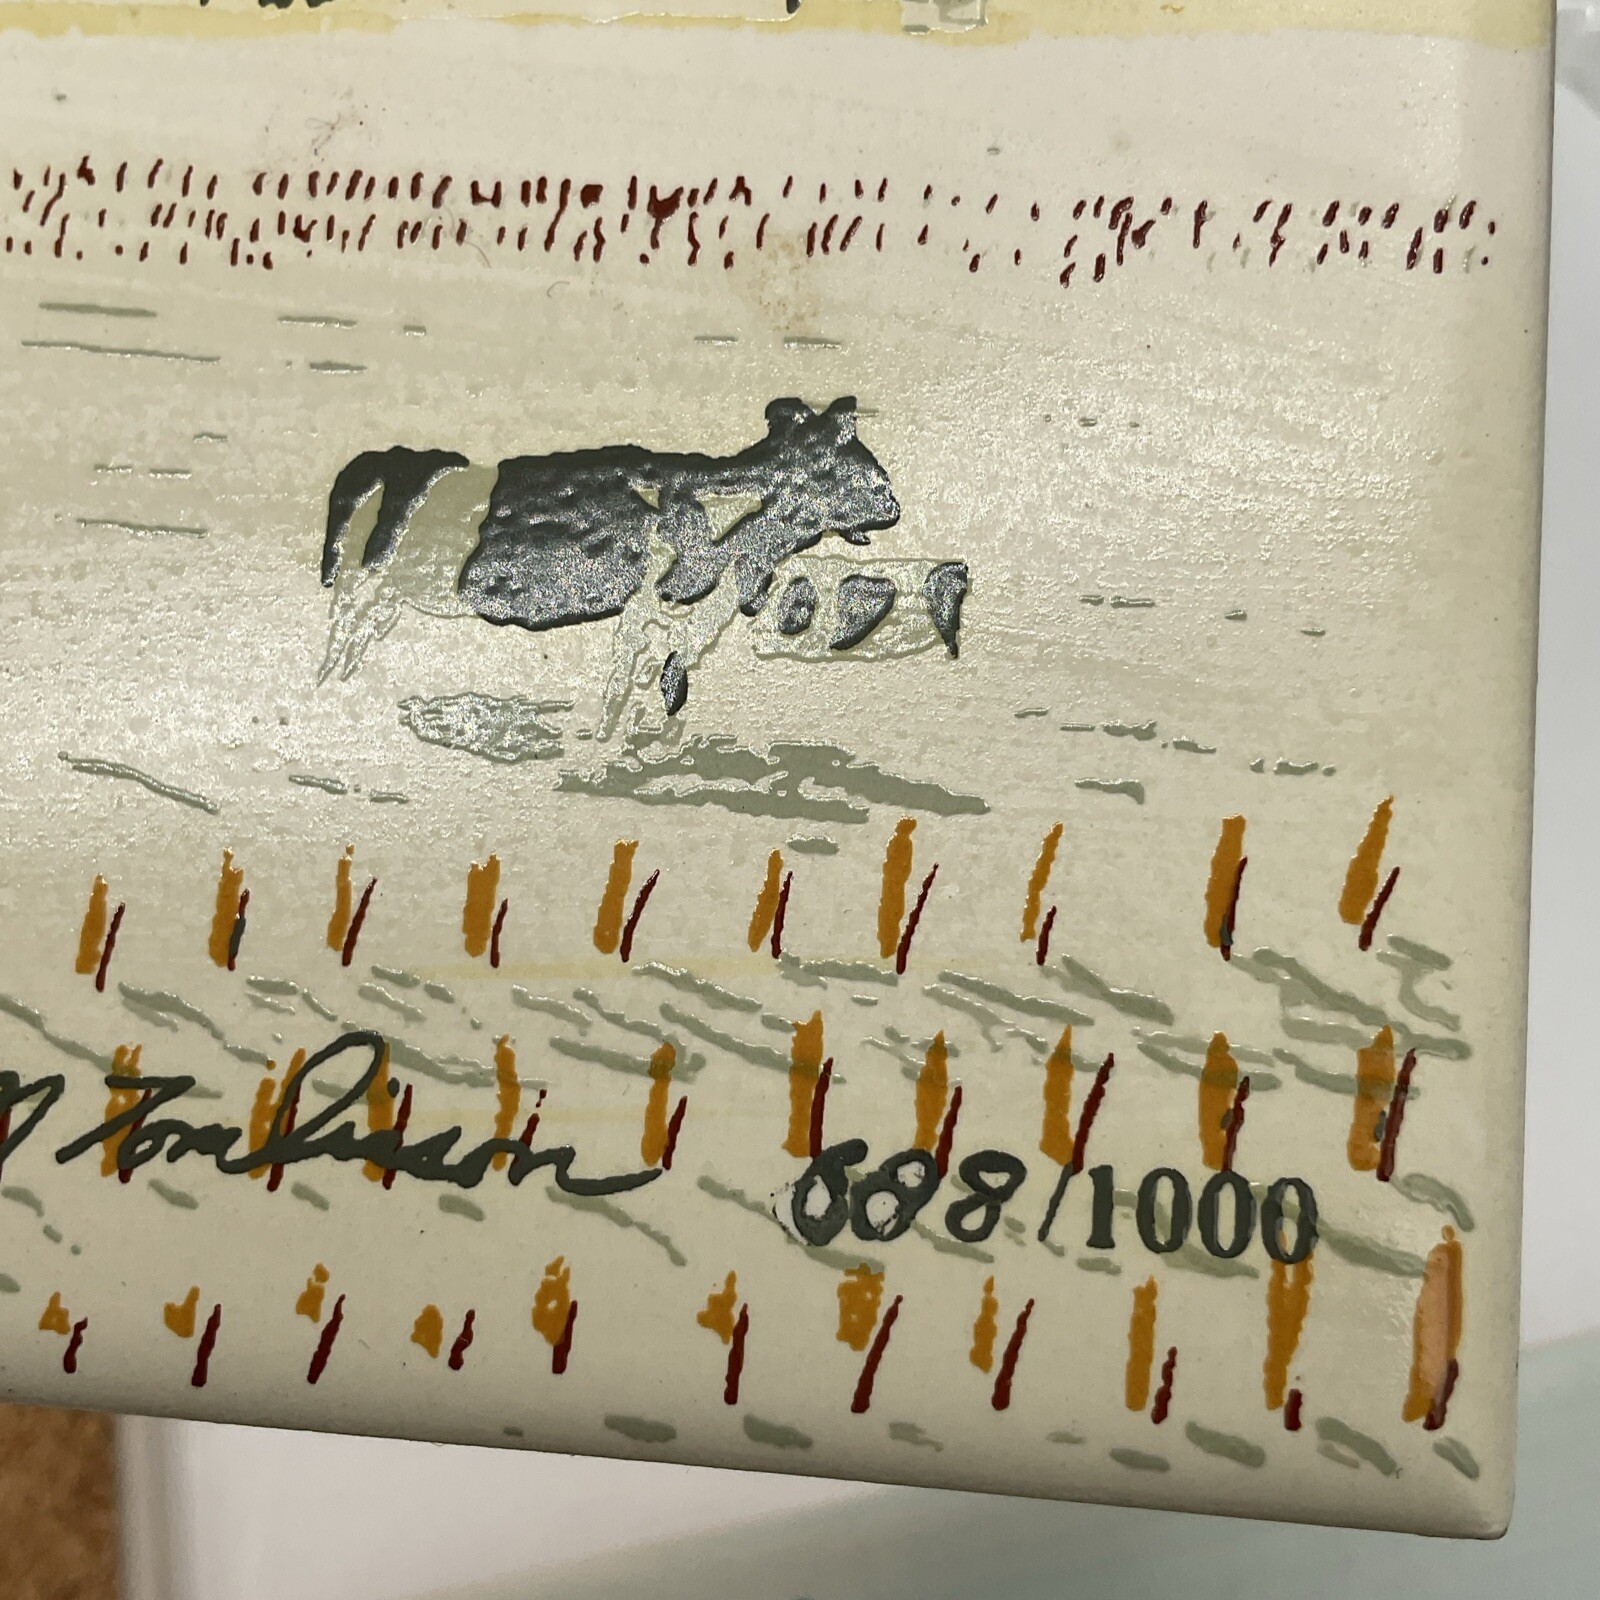 Tomlinson 688/1000